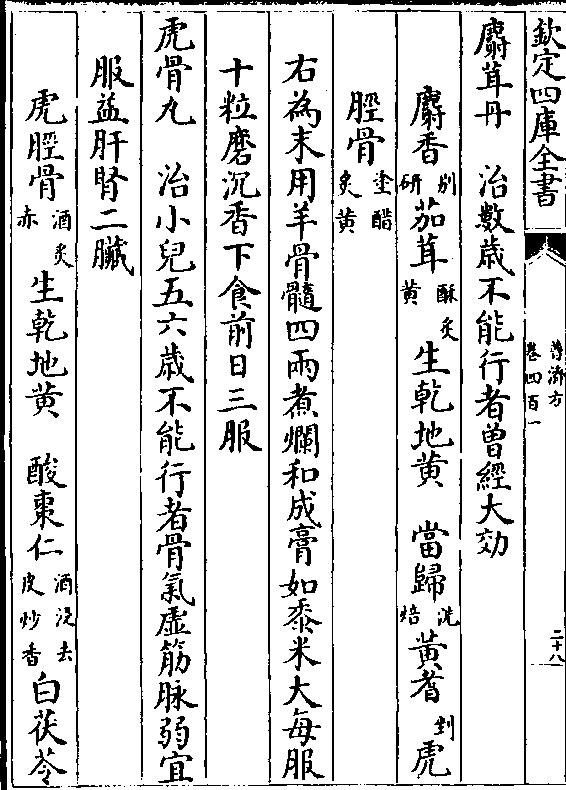 欽定四庫全書
普濟方
卷四百一
二十八
麝茸丹　治數歳不能行者曾經大効
麝香别研茄茸酥炙黄生乾地黄　當歸洗焙黄耆剉虎
脛骨塗醋炙黄
右為末用羊骨髓四兩煮爛和成膏如黍米大每服
十粒磨沉香下食前日三服
虎骨丸　治小兒五六歳不能行者骨氣虚筋脉弱宜
服益肝腎二臟
虎脛骨酒炙赤生乾地黄　酸棗仁酒浸去皮炒香白茯苓